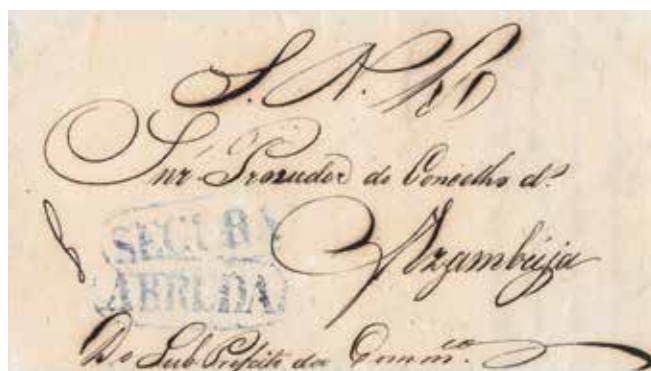 S. N. R
Snr. Provedor do Concelho d.
Azambuja
SEGURA
ABRUDA
Do Sub Prefeito da Comm.ca